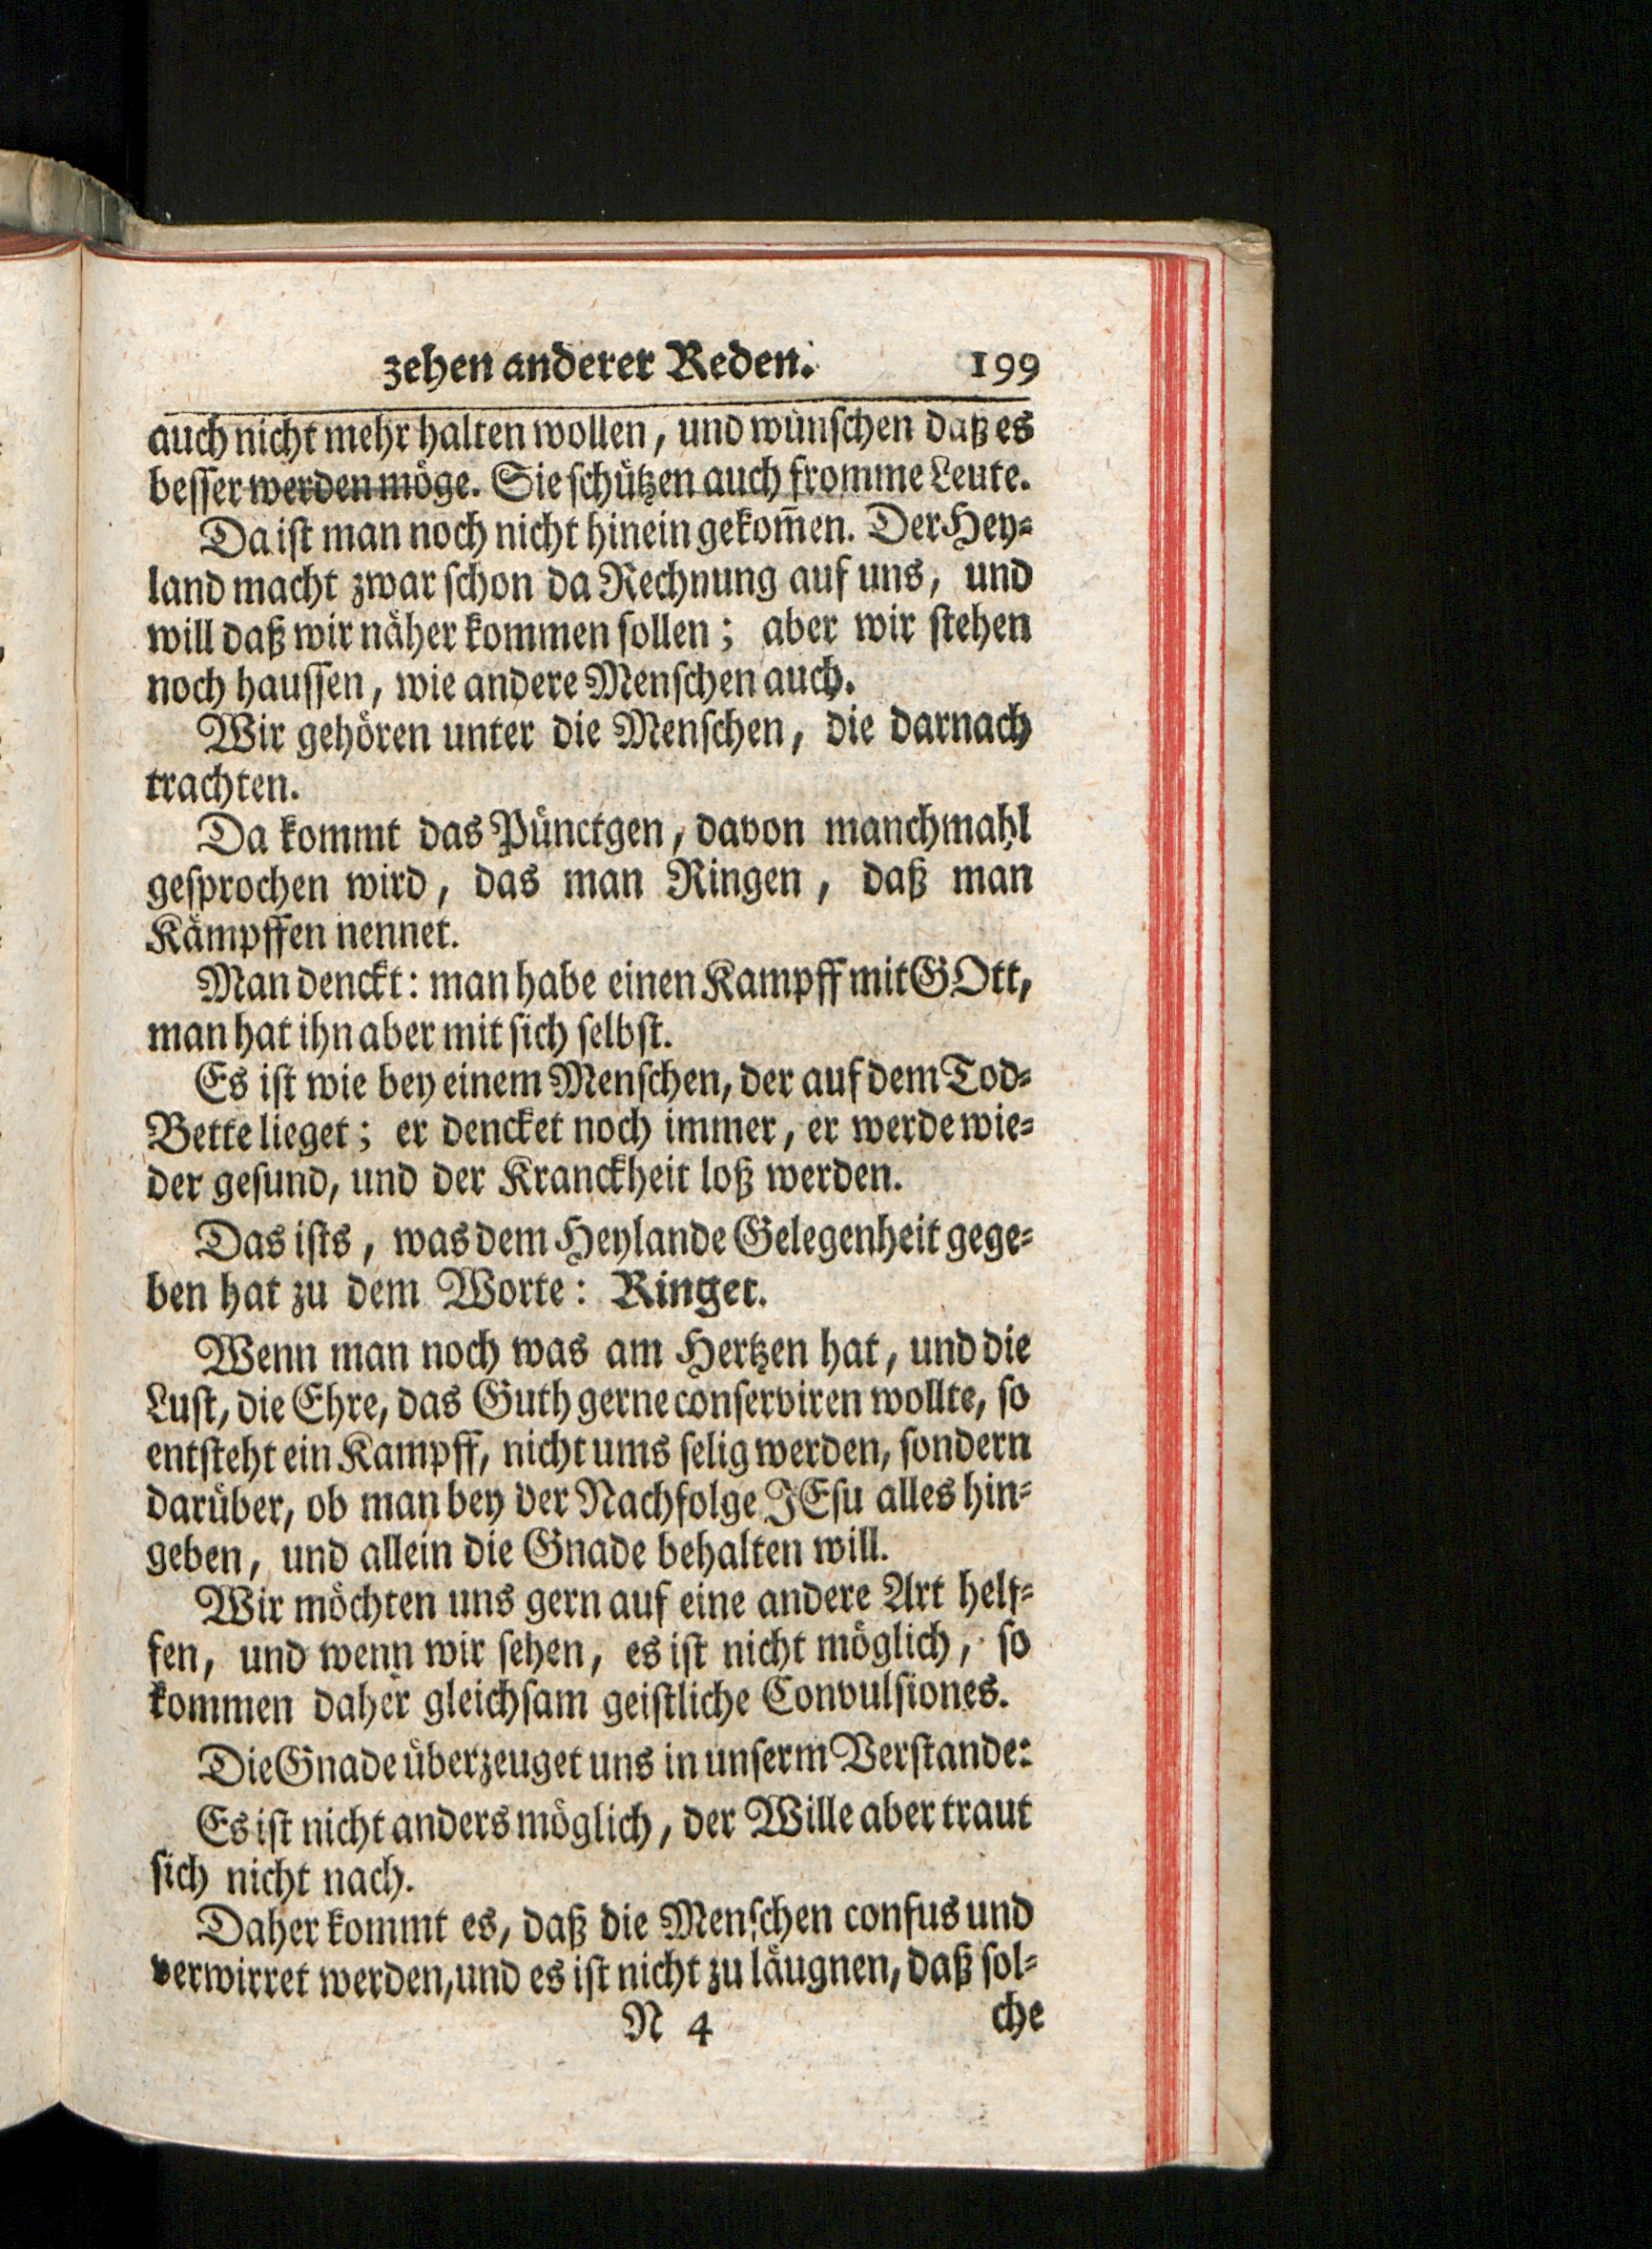 zehen anderer Reden. 199
auch nicht mehr halten wollen, und wünschen daß es
besser werden möge. Sie schützen auch fromme Leute.
Da ist man noch nicht hinein gekom̃en. Der Hey⸗
land macht zwar schon da Rechnung auf uns, und
will daß wir näher kommen sollen; aber wir stehen
noch haussen, wie andere Menschen auch.
Wir gehören unter die Menschen, die darnach
trachten.
Da kommt das Pünctgen, davon manchmahl
gesprochen wird, das man Ringen, daß man
Kämpffen nennet.
Man denckt: man habe einen Kampff mit GOtt,
man hat ihn aber mit sich selbst.
Es ist wie bey einem Menschen, der auf dem Tod⸗
Bette lieget; er dencket noch immer, er werde wie⸗
der gesund, und der Kranckheit loß werden.
Das ists, was dem Heylande Gelegenheit gege⸗
ben hat zu dem Worte: Ringet.
Wenn man noch was am Hertzen hat, und die
Lust, die Ehre, das Guth gerne conserviren wollte, so
entsteht ein Kampff, nicht ums selig werden, sondern
darüber, ob man bey der Nachfolge JEsu alles hin⸗
geben, und allein die Gnade behalten will.
Wir möchten uns gern auf eine andere Art helf⸗
fen, und wenn wir sehen, es ist nicht möglich, so
kommen daher gleichsam geistliche Convulsiones.
Die Gnade überzeuget uns in unserm Verstande:
Es ist nicht anders möglich, der Wille aber traut
sich nicht nach.
Daher kommt es, daß die Menschen confus und
verwirret werden, und es ist nicht zu läugnen, daß sol⸗
N 4 che